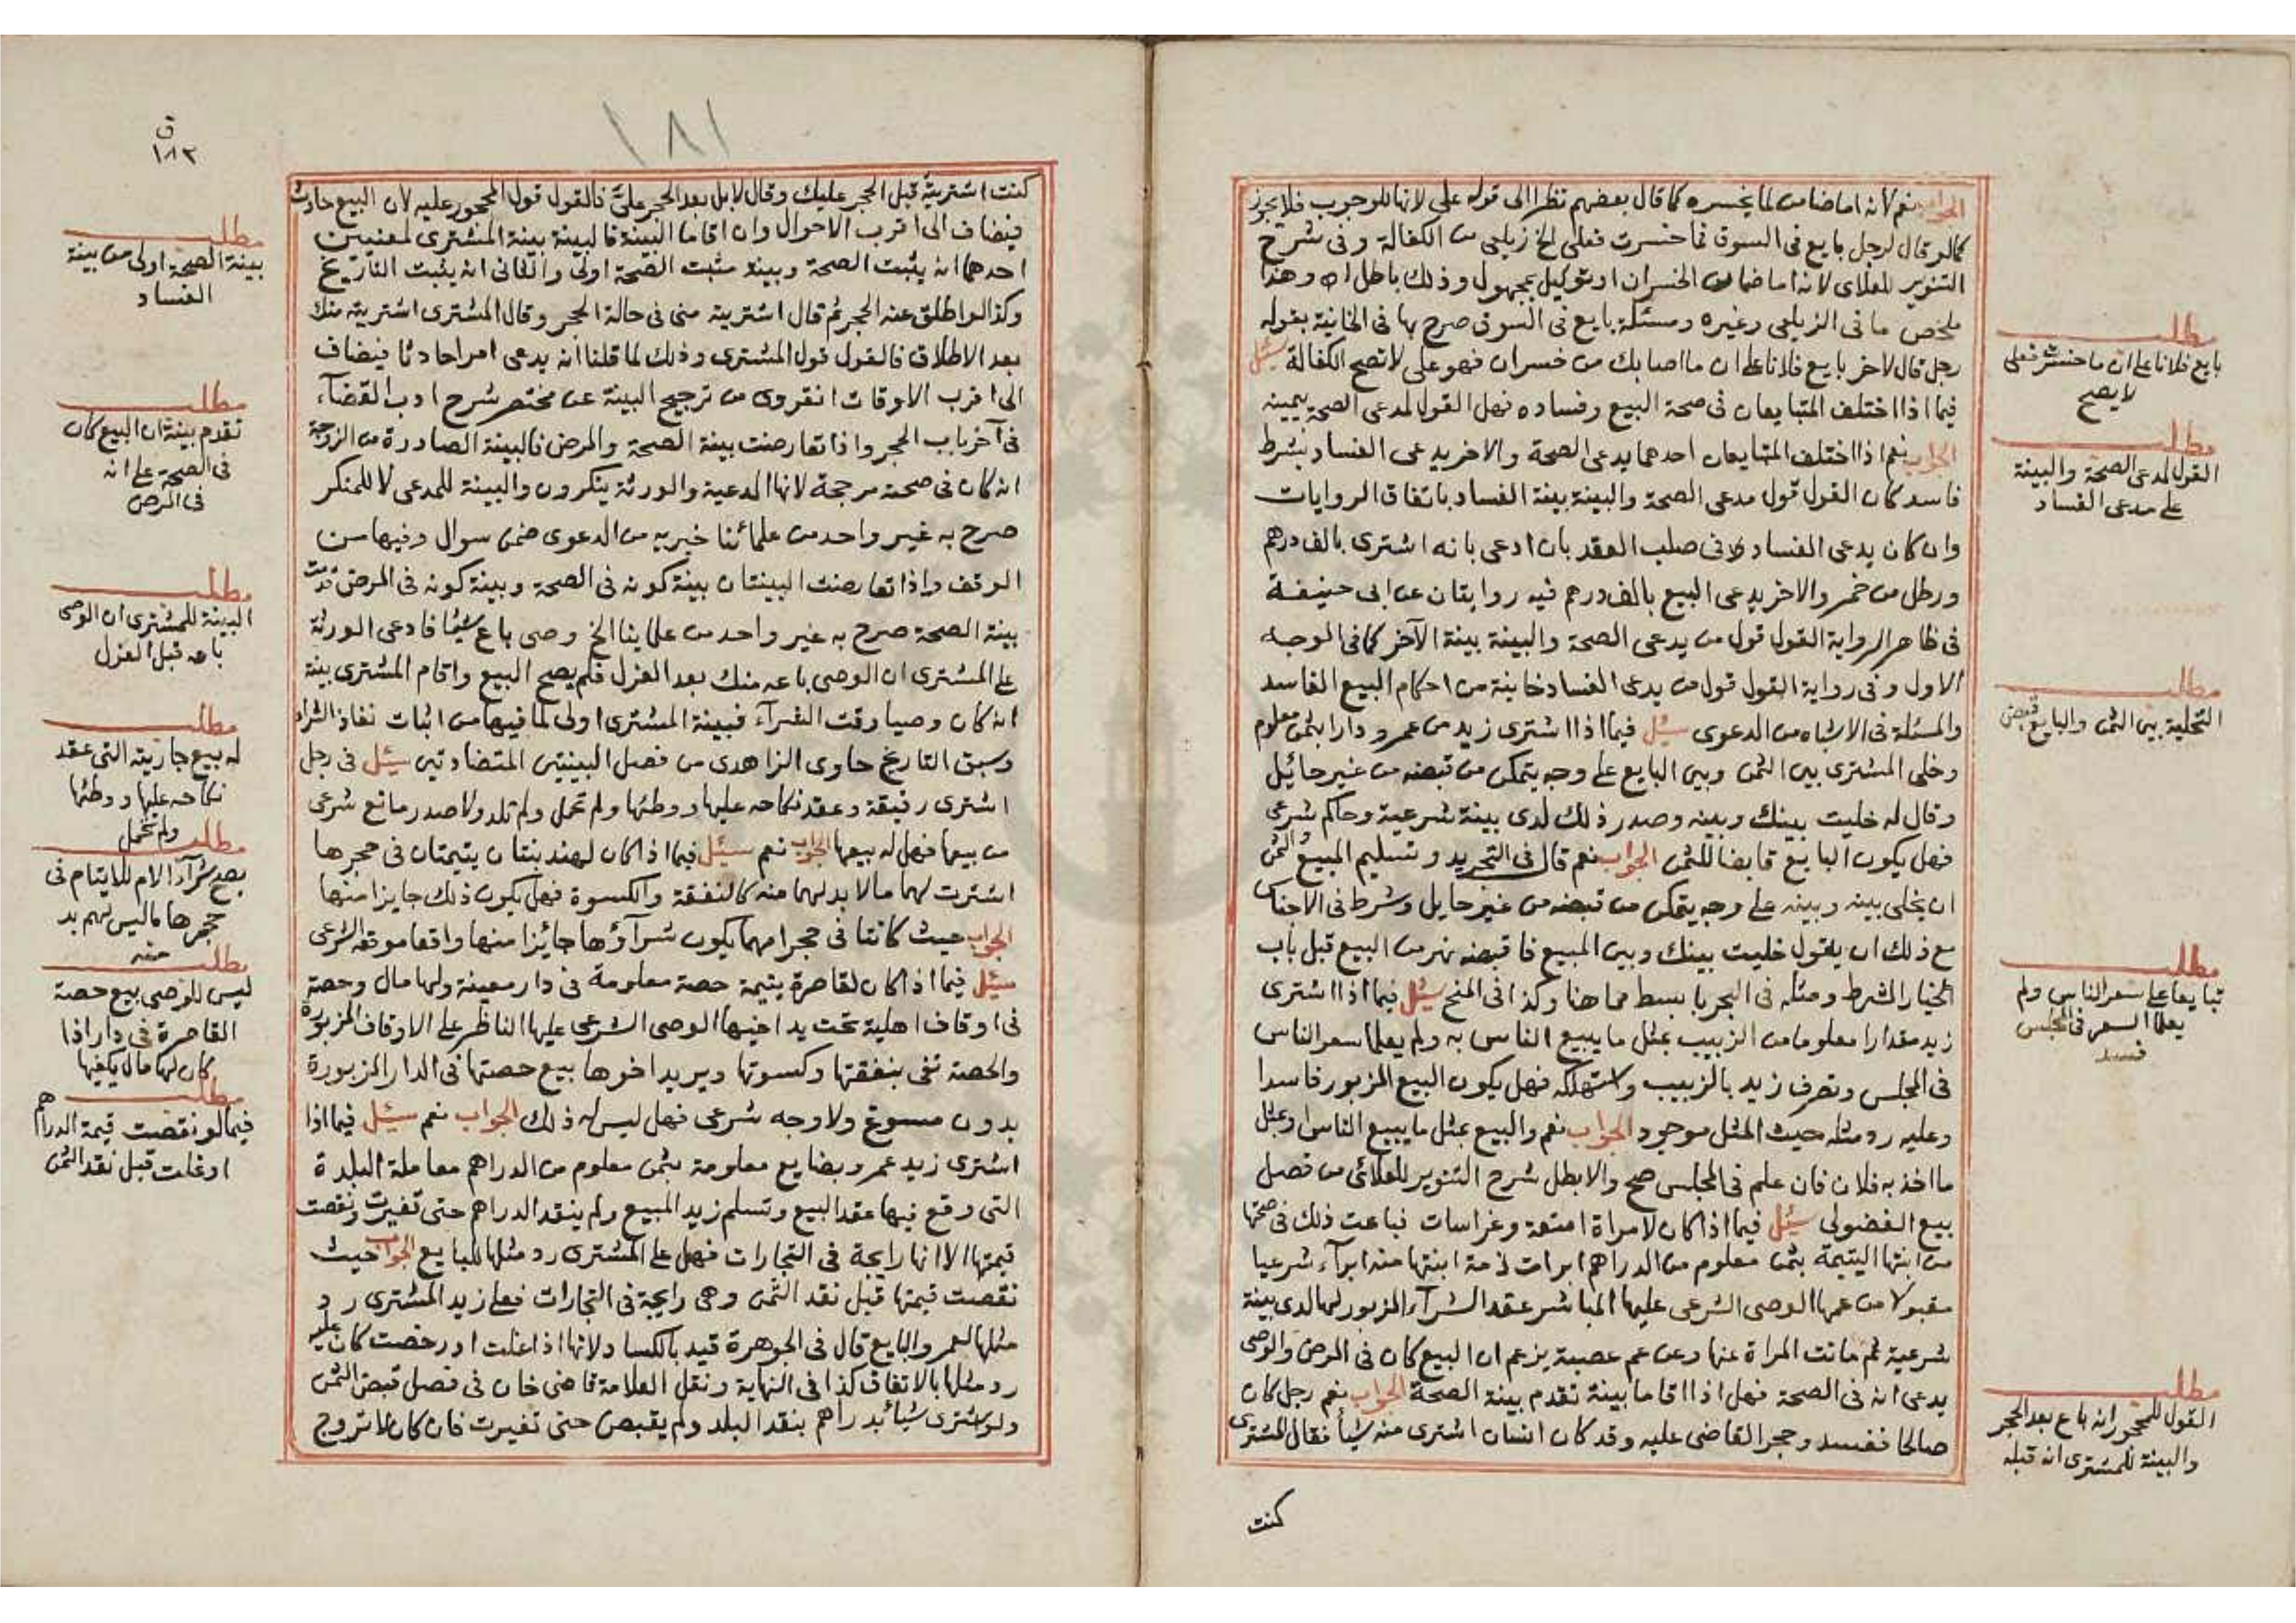 الجواب نعم لانه اما ضامن لما يخسره كما قال بعضهم نظرا الى قوله علي لانها للوجوب فلا يجوز
كما لو قال لرجل بايع في السوق فما خسرت فعلي الخ زيلعي من الكفالة وفي شرح
التنوير للعلاي لانه اما ضمان الخسران او توكيل بمجهول وذلك باطل اه وهذا
ملخص ما في الزيلعي وغيره ومسئلة بايع في السوق صرح بها في الخانية بقوله
رجل قال لاخر بايع فلانا على ان ما اصابك من خسران فهو علي لا تصح الكفالة سئل
فيما اذا اختلف المتبايعان في صحة البيع وفساده فهل القول لمدعي الصحة بيمينه
الجواب نعم اذا اختلف المتبايعان احدهما يدعي الصحة والاخر يدعي الفساد بشرط
فاسد كان القول قول مدعي الصحة والبينة بينة الفساد باتفاق الروايات
وان كان يدعي الفساد في صلب العقد بان ادعى بانه اشترى بالف درهم
ورطل من خمر والاخر يدعي البيع بالف درهم فيه روايتان عن ابى حنيفة
في ظاهر الرواية القول قول من يدعي الصحة والبينة بينة الآخر كما في الوجه
الاول وفي رواية القول قول من يدعي الفساد خانية من احكام البيع الفاسد
والمسئلة في الاشباه من الدعوى سئل فيما اذا اشترى زيد من عمرو دارا بثمن معلوم
وخلى المشترى بين الثمن وبين البايع على وجه يتمكن من قبضه من غير حايل
وقال له خليت بينك وبينه وصدر ذلك لدى بينة شرعية وحاكم شرعي
فهل يكون البايع قابضا للثمن الجواب نعم قال في التجريد وتسليم المبيع والثمن
ان يخلى بينه وبينه على وجه يتمكن من قبضه من غير حايل وشرط في الاجناس
مع ذلك ان يقول خليت بينك وبين المبيع فاقبضه نهر من البيع قبل باب
الخيار الشرط ومثله في البحر بابسط مما هنا وكذا في المنح سئل فيما اذا اشترى
زيد مقدارا معلوما من الزبيب بمثل ما يبيع الناس به ولم يعلما سعر الناس
في المجلس وتصرف زيد بالزبيب واستهلكه فهل يكون البيع المزبور فاسدا
وعليه رد مثله حيث المثل موجود الجواب نعم والبيع بمثل ما يبيع الناس او بمثل
ما اخذ به فلان فان علم في المجلس صح والا بطل شرح التنوير للعلائي من فصل
بيع الفضولى سئل فيما اذا كان لامراة امتعة وغراسات فباعت ذلك في صحتها
من ابنتها اليتيمة بثمن معلوم من الدراهم ابرات ذمة ابنتها منه ابراء شرعيا
مقبولا من عمها الوصى الشرعى عليها المباشر عقد الشراء المزبور لها لدى بينة
شرعية ثم ماتت المراة عنها وعن عم عصبية يزعم ان البيع كان في المرض والوصى
يدعى انه في الصحة فهل اذا اقاما بينة تقدم بينة الصحة الجواب نعم رجل كان
صالحا ففسد وحجر القاضى عليه وقد كان انسان اشترى منه شيأ فقال المشترى
كنت
مطلب
بايع فلانا على ان ما خسرت فعلى
لا يصح
مطلب
القول لمدعى الصحة والبينة
على مدعى الفساد
مطلب
التخلية بين الثمن والبايع قبض
مطلب
تبايعا على سعر الناس ولم
يعلما السعر في المجلس
فسد
مطلب
القول للمحجور انه باع بعد الحجر
والبينة للمشترى انه قبله
١٨١
ق
١٨٢
كنت اشتريته قبل الحجر عليك وقال لا بل بعد الحجر علي فالقول قول المحجور عليه لان البيع حادث
فيضاف الى اقرب الاحوال وان اقاما البينة فالبينة بينة المشترى لمعنيين
احدهما انه يثبت الصحة وبينة مثبت الصحة اولى والثانى انه يثبت التاريخ
وكذا لو اطلق عنه الحجر ثم قال اشتريته منى في حالة الحجر وقال المشترى اشتريته منك
بعد الاطلاق فالقول قول المشترى وذلك لما قلنا انه يدعى امرا حادثا فيضاف
الى اقرب الاوقات انقروى من ترجيح البينة عن مختصر شرح ادب القضاء
في آخر باب الحجر واذا تعارضت بينة الصحة والمرض فالبينة الصادرة من الزوجة
انه كان في صحته مرجحة لانها المدعية والورثة ينكرون والبينة للمدعى لا للمنكر
صرح به غير واحد من علمائنا خيريه من الدعوى ضمن سوال وفيها من
الوقف واذا تعارضت البينتان بينة كونه في الصحة وبينة كونه في المرض قدمت
بينة الصحة صرح به غير واحد من علماينا الخ وصى باع شيئا فادعى الورثة
على المشترى ان الوصى باعه منك بعد العزل فلم يصح البيع واقام المشترى بينة
انه كان وصيا وقت الشراء فبينة المشترى اولى لما فيها من اثبات نفاذ الشراء
وسبق التاريخ حاوى الزاهدى من فصل البينتين المتضادتين سئل في رجل
اشترى رقيقة وعقد نكاحه عليها ووطئها ولم تحمل ولم تلد ولا صدر مانع شرعى
من بيعها فهل له بيعها الجواب نعم سئل فيما اذا كان لهند بنتان يتيمتان في حجرها
اشترت لهما ما لا بد لهما منه كالنفقة والكسوة فهل يكون ذلك جايزا منها
الجواب حيث كانتا في حجر امهما يكون شراؤها جائزا منها واقعا موقعه الشرعى
سئل فيما اذا كان لقاصرة يتيمة حصة معلومة في دار معينة ولها مال وحصة
في اوقاف اهلية تحت يد اخيها الوصى الشرعى عليها الناظر على الاوقاف المزبورة
والحصة تفى بنفقتها وكسوتها ويريد اخوها بيع حصتها في الدار المزبورة
بدون مسوغ ولا وجه شرعى فهل ليس له ذلك الجواب نعم سئل فيما اذا
اشترى زيد عمرو بضايع معلومة بثمن معلوم من الدراهم معاملة البلدة
التى وقع فيها عقد البيع وتسلم زيد المبيع ولم ينقد الدراهم حتى تغيرت ونقصت
قيمتها الا انها رايجة في التجارات فهل على المشترى رد مثلها للبايع الجواب حيث
نقصت قيمتها قبل نقد الثمن وهى رايجة في التجارات فعلى زيد المشترى رد
مثلها لعمرو البايع قال في الجوهرة قيد بالكساد لانها اذا غلت او رخصت كان عليه
رد مثلها بالاتفاق كذا في النهاية ونقل العلامة قاضى خان في فصل قبض الثمن
ولو اشترى شيأ بدراهم بنقد البلد ولم يقبض حتى تغيرت فان كان لا تروج
مطلب
بينة الصحة اولى من بينة
الفساد
مطلب
تقدم بينة ان البيع كان
في الصحة على انه
في المرض
مطلب
البينة للمشترى ان الوصى
باعه قبل العزل
مطلب
له بيع جاريته التى عقد
نكاحه عليها ووطئها
ولم تحمل
مطلب
يصح شراء الام للايتام في
حجرها ما ليس لهم بد
منه
مطلب
ليس للوصى بيع حصة
القاصرة في دار اذا
كان لها مال يكفيها
مطلب
فيما لو نقصت قيمة الدراهم
او غلت قبل نقد الثمن